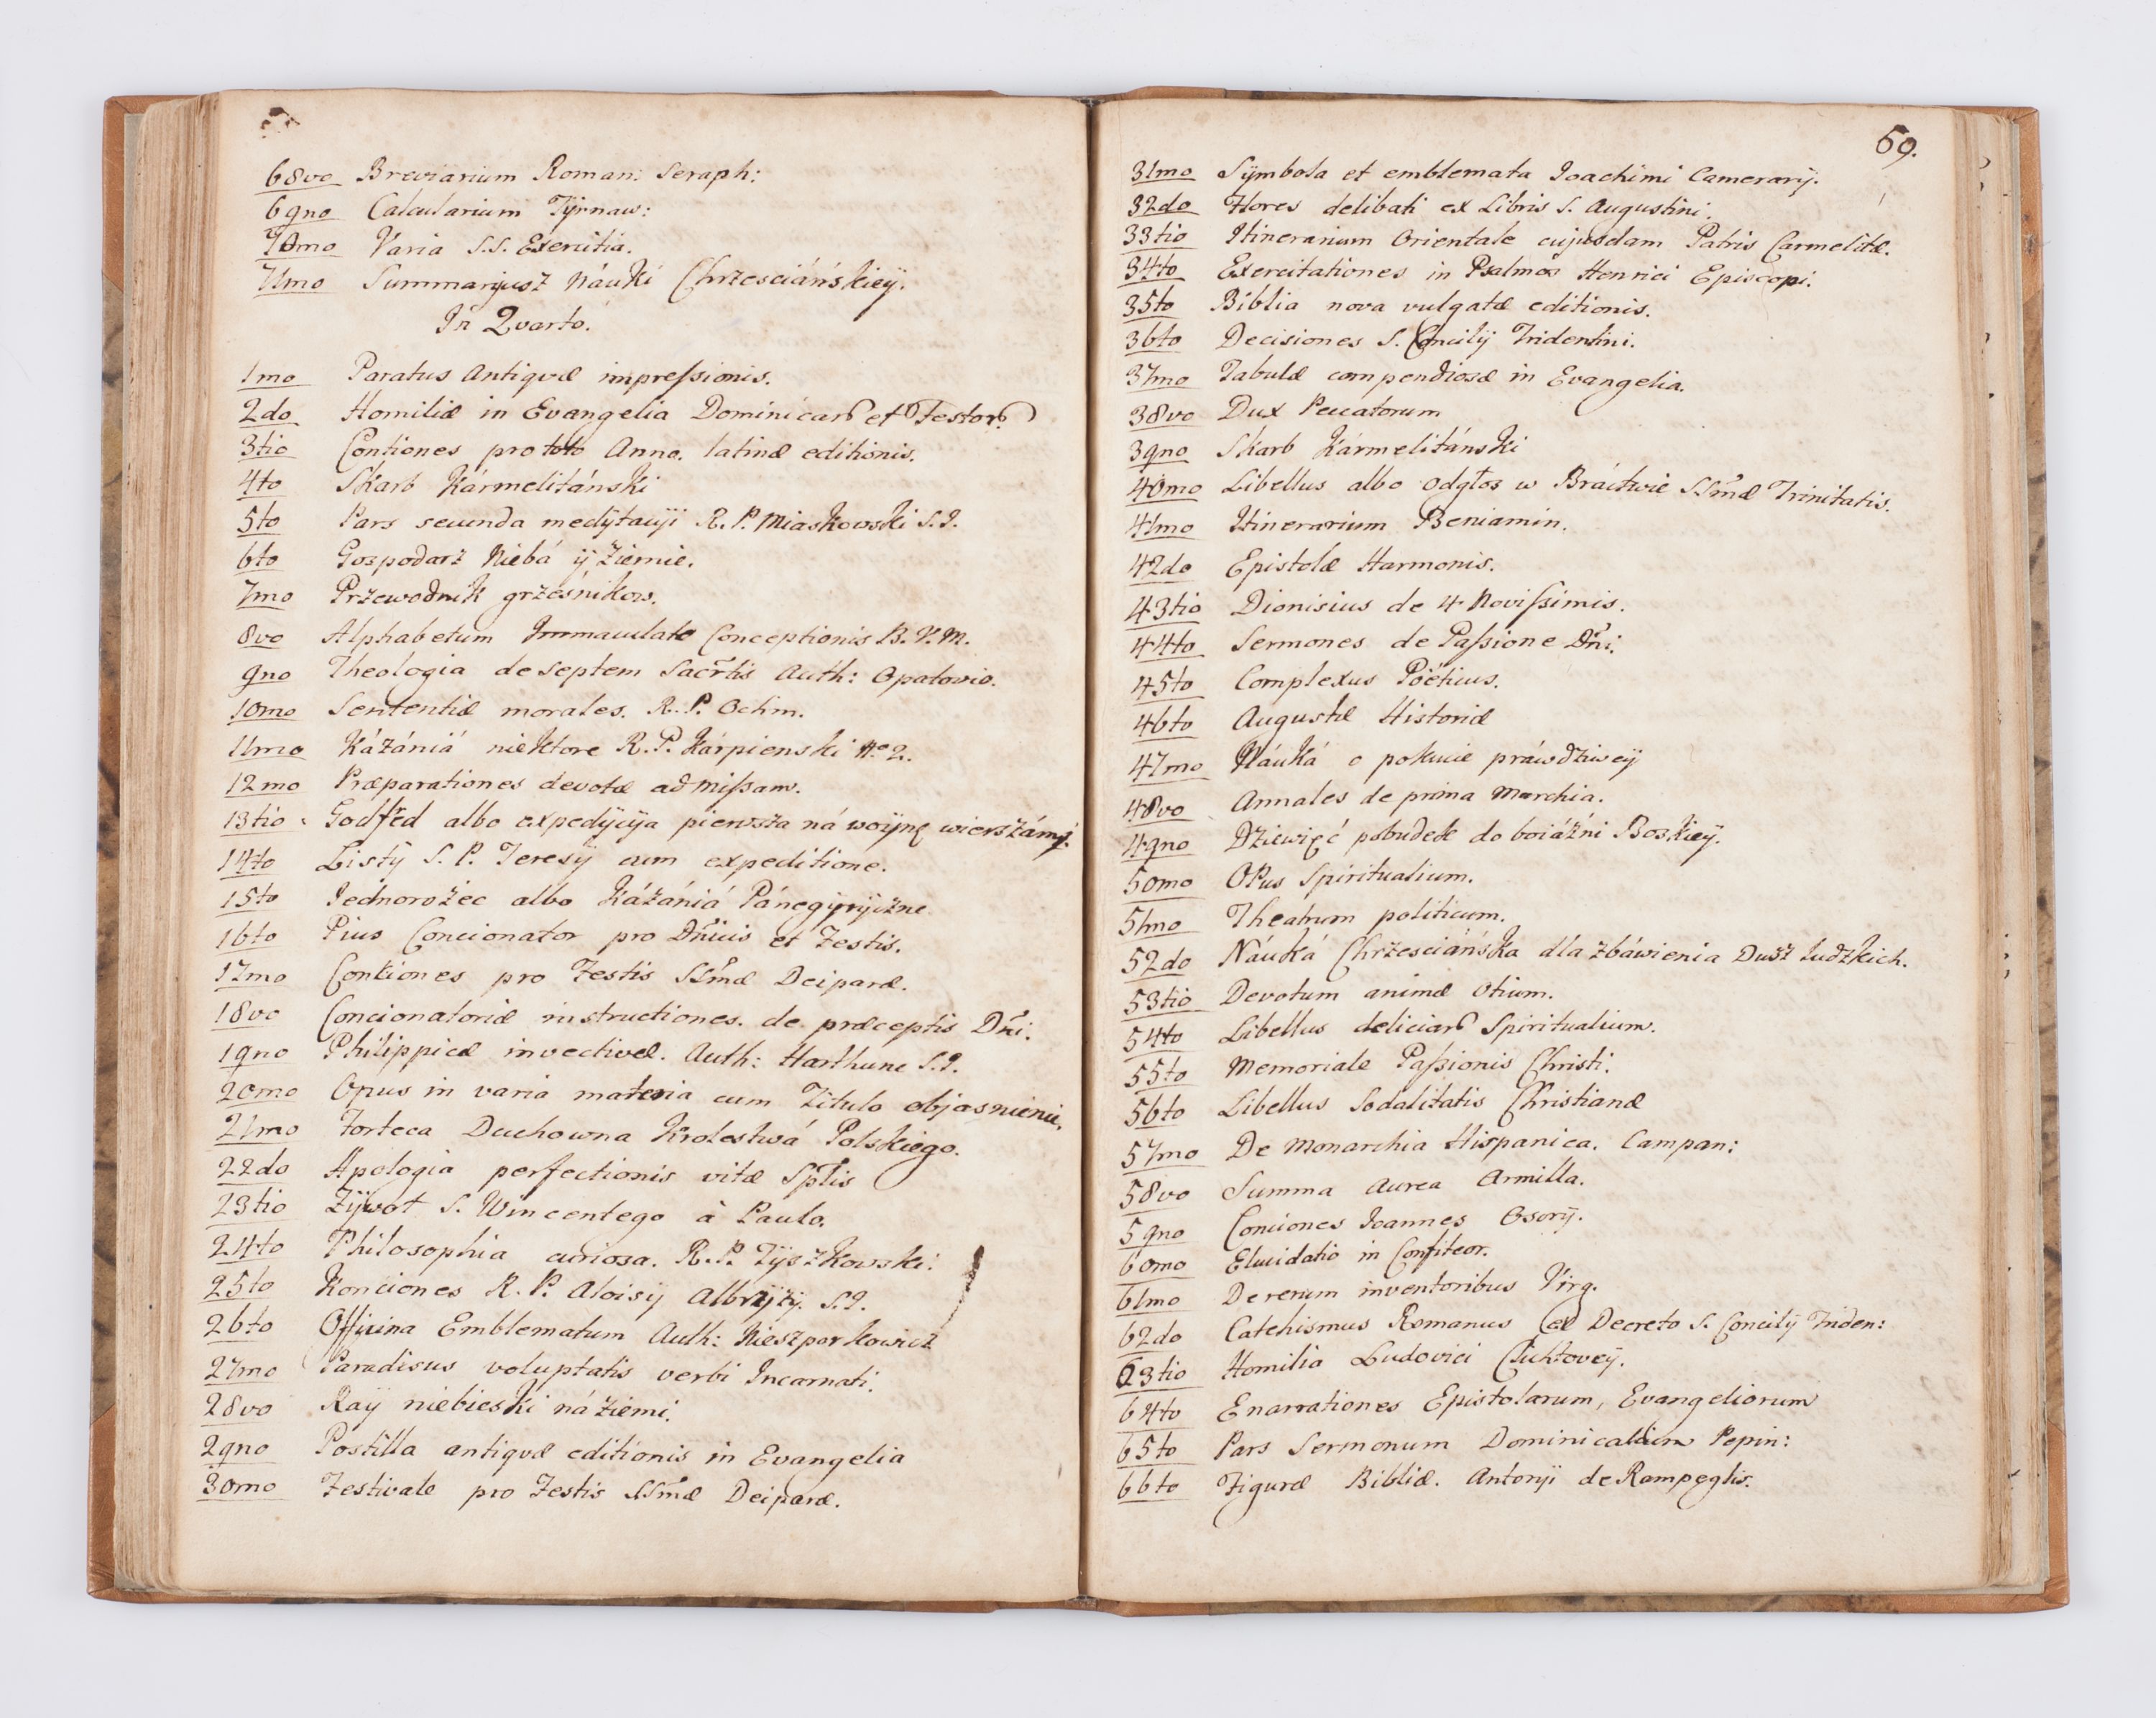 68vo Breviarium Roman: Seraph:
69no Calcularium Tÿrnaw:
70mo Varia S.S. Exercitia.
71mo Summaryusz Náuki Chrzesciáńskieÿ.
In Qvarto.
1mo Paratus Antiqvæ impressionis.
2do Homiliæ in Evangelia Dominicar et Festor.
3tio Contiones pro toto Anno. latinæ editionis.
4to Skarb Kármelitánski
5to Pars secunda medÿtacÿi R. P. Miaskowski S.I.
6to Gospodarz Niebá ÿ żiemie.
7mo Przewodnik grześnikow.
8vo Alphabetum Immaculatæ Conceptionis B.V.M.
9no Theologia de septem Sacrtis Auth: Opatovio.
10mo Sententiæ morales. R.P. Ochm.
11mo Kázániá niektore R.P. Kárpienski No 2.
12mo Præparationes devotæ ad Missam.
13tio Godfred albo expedÿcÿa pierwsza ná woÿnę wierszámi.
14to Listÿ S. P. Teresÿ cum expeditione.
15to Iednorożec albo Kázániá Pánegÿryczne
16to Pius Concionator pro Dnicis et Festis.
17mo Contiones pro Festis SSmæ Deiparæ.
18vo Concionatoriæ instructiones. de præceptis Dni.
19no Philippicæ invectivæ. Auth: Harthune S.I.
20mo Opus in varia materia cum Titulo objasnienie.
21mo Forteca Duchowna Krolestwá Polskiego.
22do Apologia perfectionis vitæ Sptis
23tio Zÿwot S. Wincentego à Paulo.
24to Philosophia curiosa. R.P. Tÿszkowski:
25to Konciones R. P. Aloisÿ Albryzÿ. S.I.
26to Officina Emblematum Auth: Nieszporkowicz
27mo Paradisus voluptatis verbi Incarnati.
28vo Raÿ niebieski ná żiemi.
29no Postilla antiqvæ editionis in Evangelia
30mo Festivale pro Festis SSmæ Deiparæ.
59.
31mo Sÿmbola et emblemata Ioachimi Camerarÿ.
32do Flores delibati ex Libris S. Augustini.
33tio Itinerarium Orientale cujusdam Patris Carmelitæ.
34to Exercitationes in Psalmos Henrici Episcopi.
35to Biblia nova vulgatæ editionis.
36to Decisiones S. Concilÿ Tridentini.
37mo Tabulæ compendiosæ in Evangelia.
38vo Dux Peccatorum
39no Skarb Kármelitánski
40mo Libellus albo odgłos w Bráctwie SSmæ Trinitatis.
41mo Itinerarium Beniamin.
42do Epistolæ Harmonis.
43tio Dionisius de 4 Novissimis.
44to Sermones de Passione Dni.
45to Complexus Poëticus.
46to Augustæ Historiæ
47mo Náuká o pokucie práwdziweÿ
48vo Annales de prima Marchia.
49no Dziewięć pobudek do boiáżni Boskieÿ.
50mo OPus Spiritualium.
51mo Theatrum politicum.
52do Náuká Chrzesciáńska dla zbáwienia Dusz ludzkich.
53tio Devotum animæ otium.
54to Libellus deliciar Spiritualium.
55to Memoriale Passionis Christi.
56to Libellus Sodalitatis Christianæ
57mo De Monarchia Hispanica. Campan:
58vo Summa aurea Armilla.
59no Conciones Ioannes Osorÿ.
60mo Elucidatio in Confiteor.
61mo De rerum inventoribus Virg.
62do Catehismus Romanus ex Decreto S. Concilÿ Triden:
63tio Homilia Ludovici Clichtoveÿ.
64to Enarrationes Epistolarum, Evangeliorum
65to Pars Sermonum Dominicalium Pepin:
66to Figuræ Bibliæ. Antonÿi de Rampeglis.